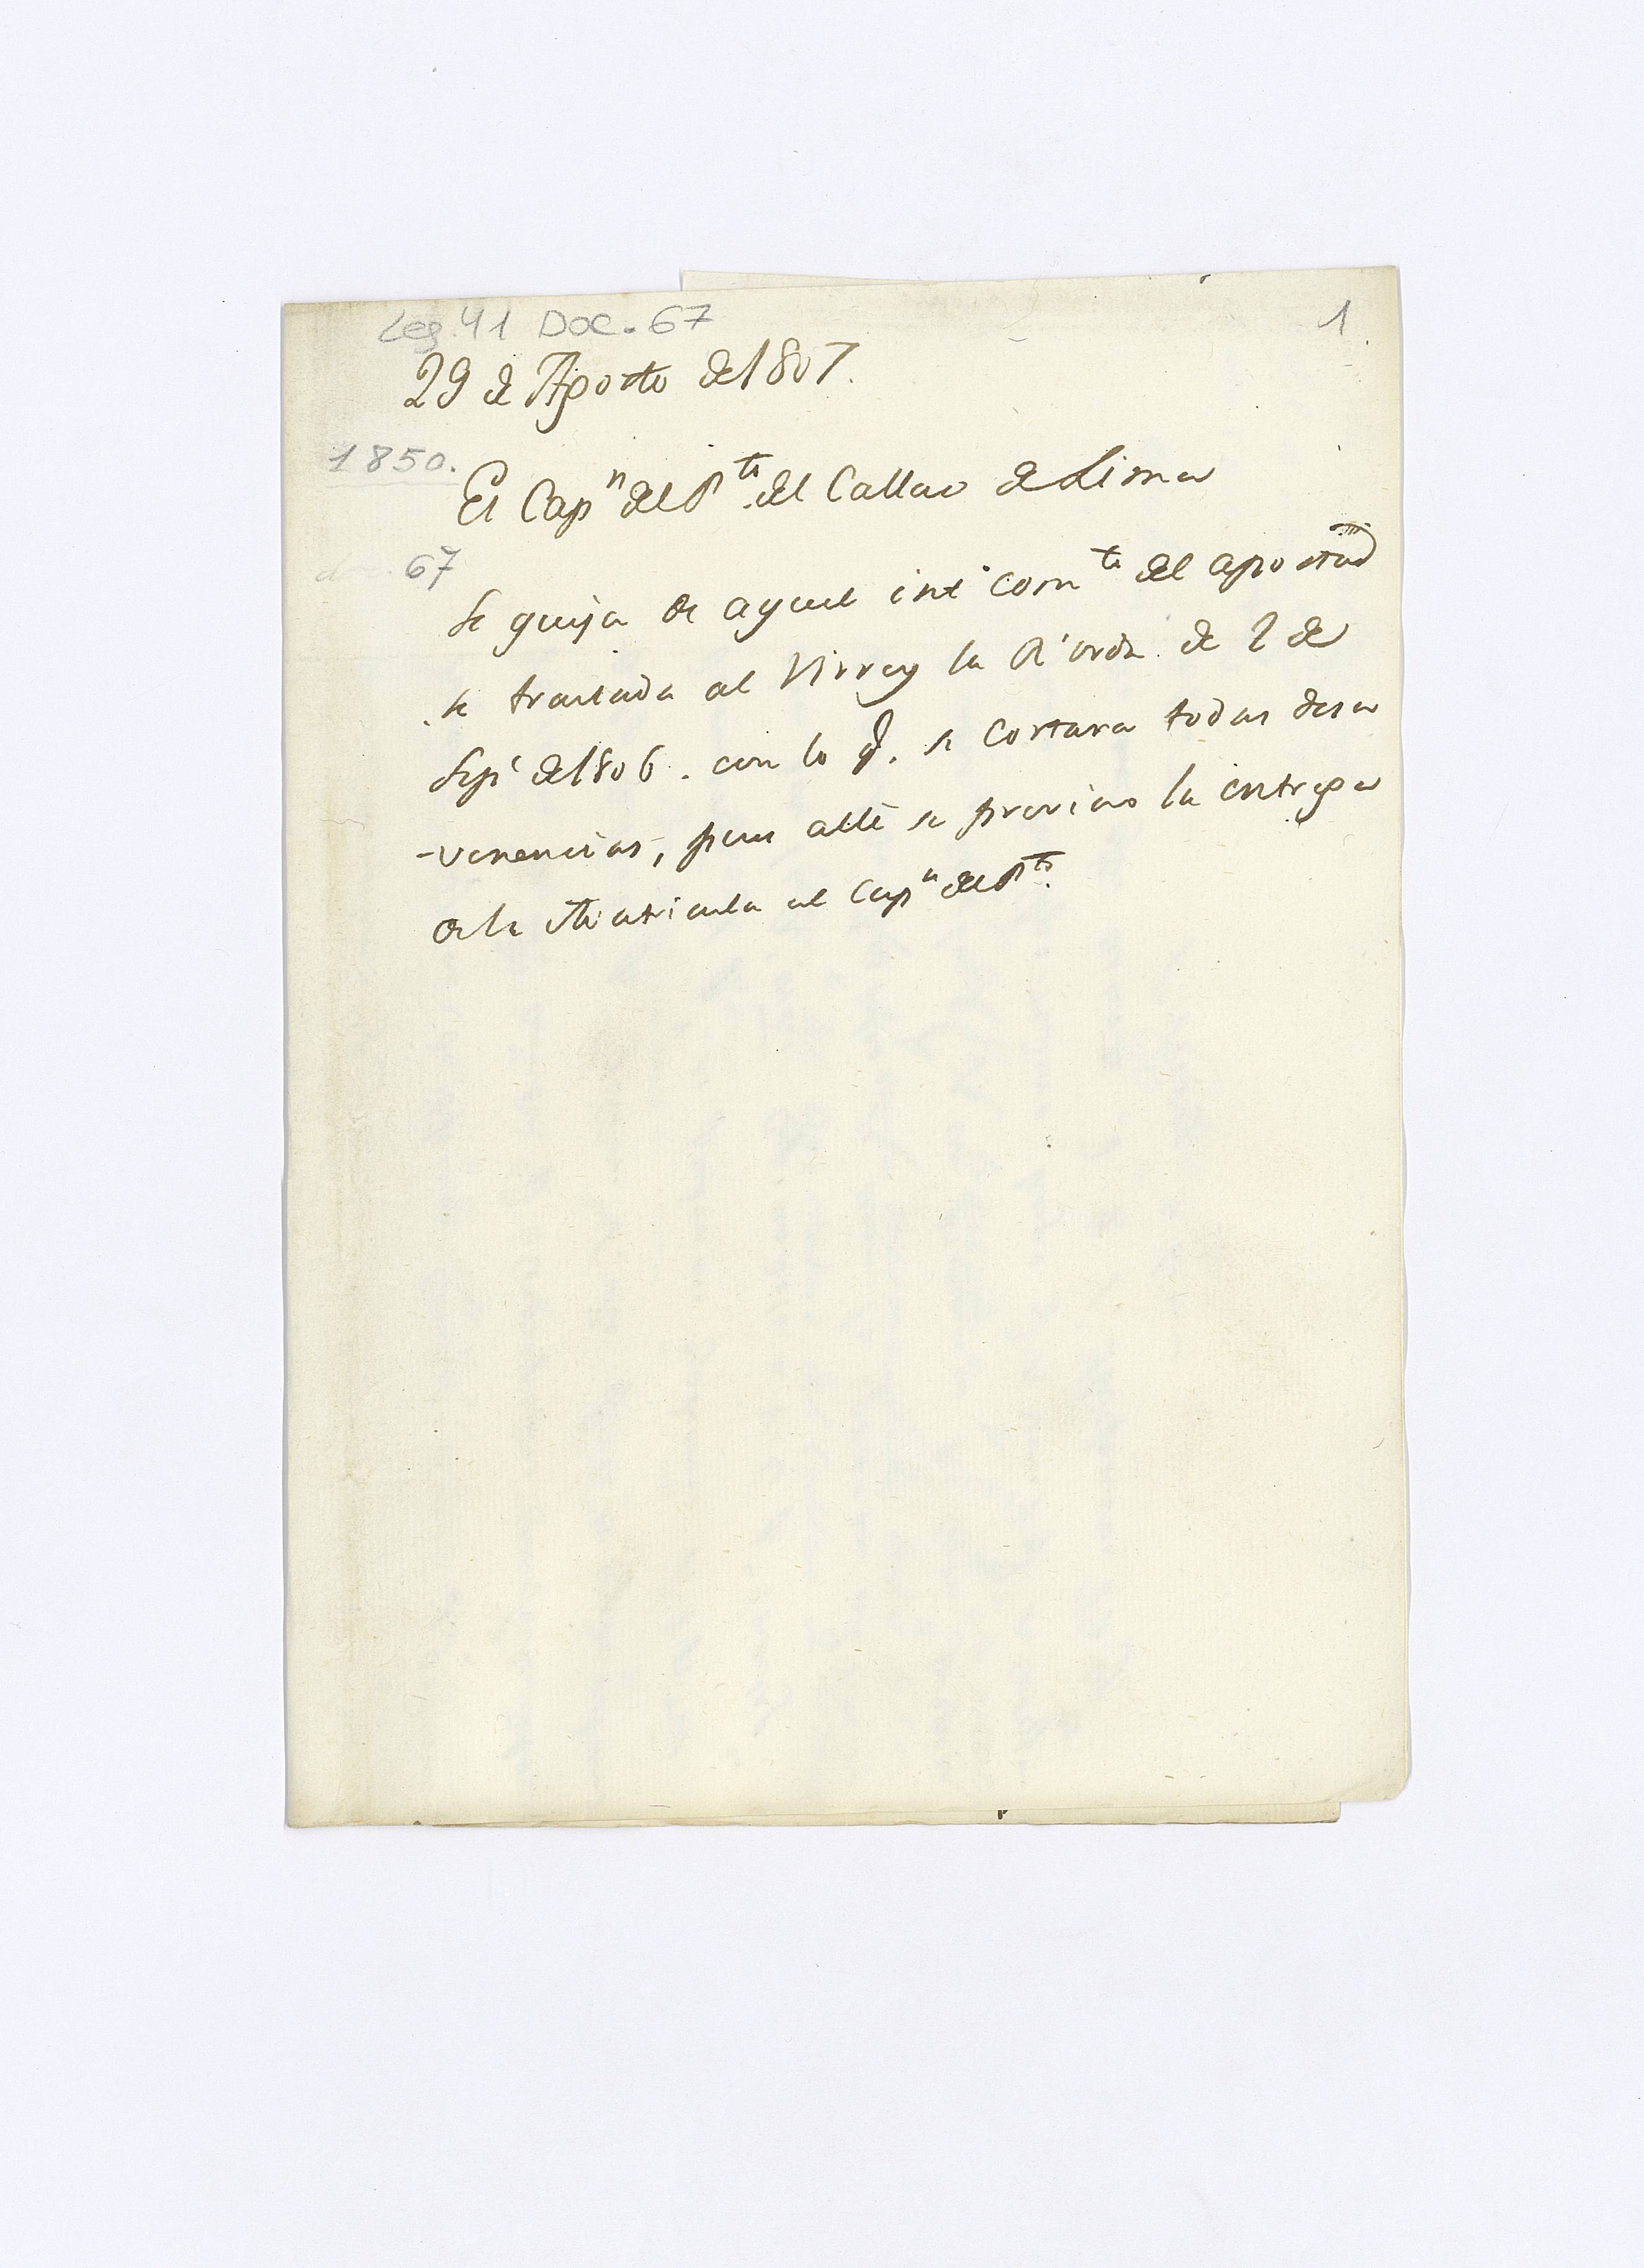 Leg. 41 Doc. 67
1
29 de Agosto de 1807.
1850.
El Capn del Pto del Callao de Lima
doc. 67
Se queja de aquel int Comte del apostad
se traslada al Virrey la Rl orden de 2 de
Sepe de 1806. con lo q. se cortara todas desa
-venencias, pues alli se previno la entrega
de la Matricula al Capn del Pto.